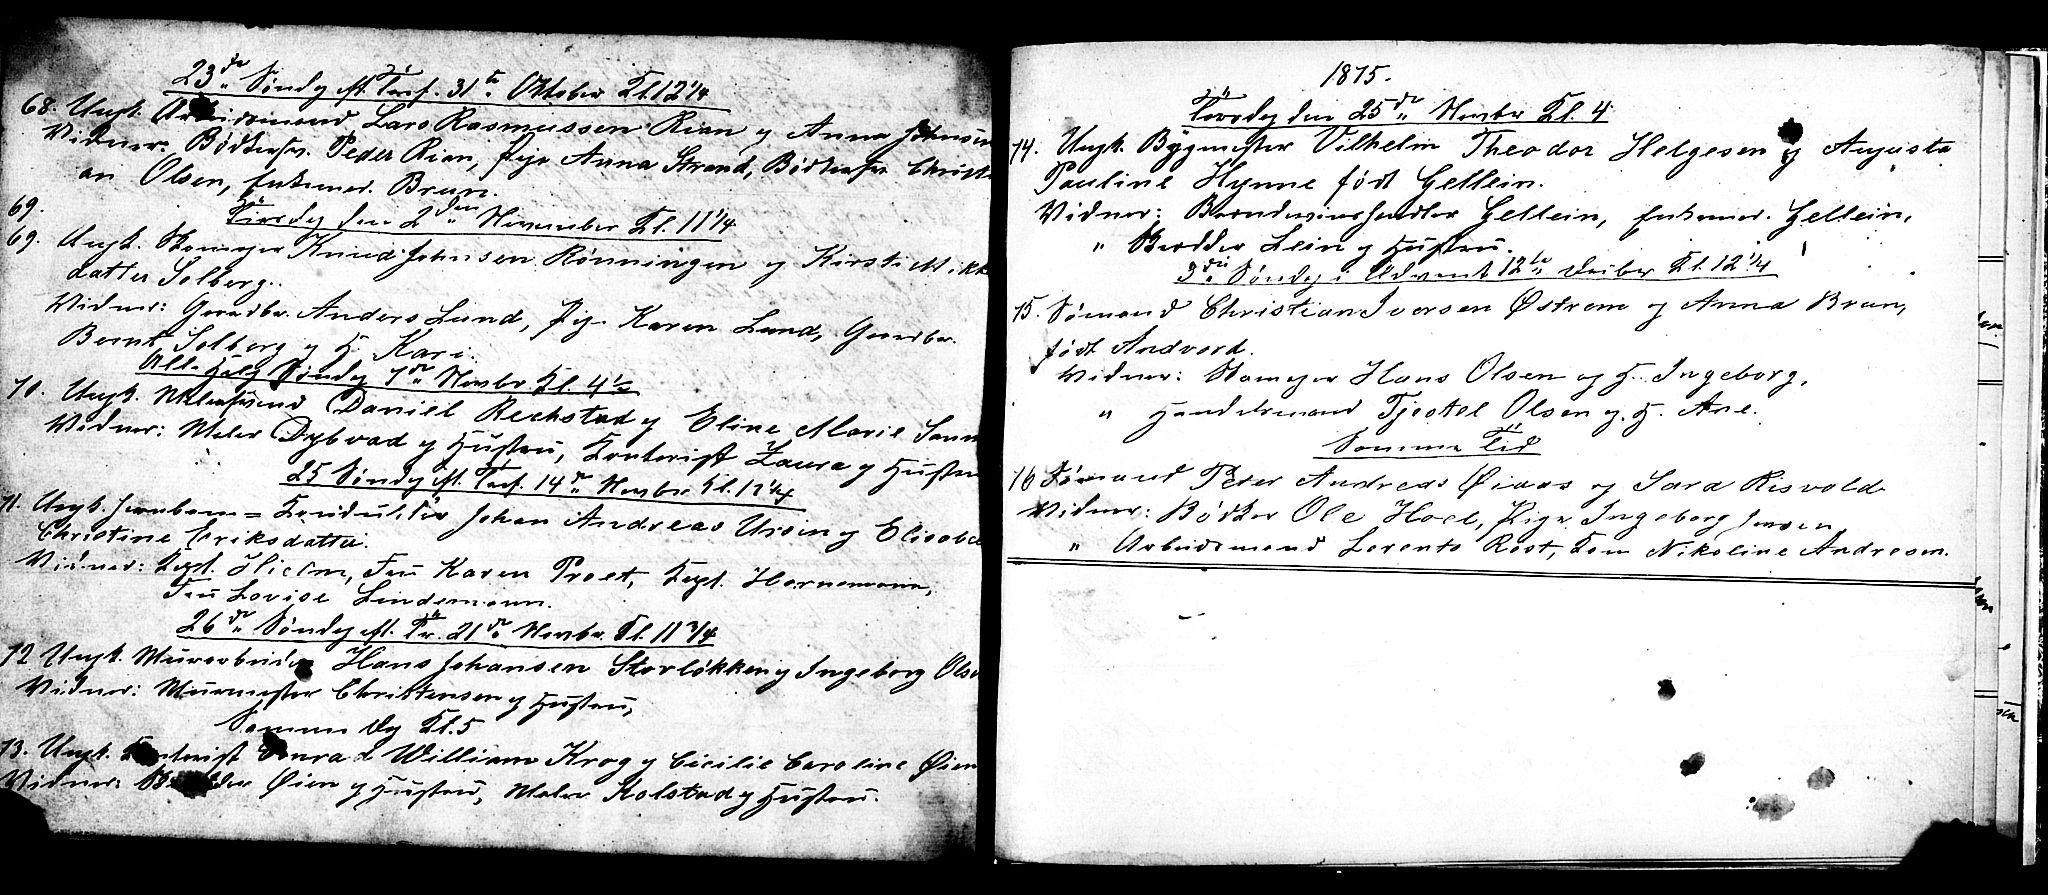 23de Søndag eft. Tref. 31te Oktober Kl. 12 1/4
68. Ungk. Arbeidsmand Lars Rasmussen Rian og Anna Johnsen
Vidner: Bødkersv. Peder Rian, Pige Anna Strand, Bødkersv. Christi
an Olsen, Enkemd. Brun.
69.
Tirsdag den 2den November Kl. 11 1/4
69. Ungk. Skomager Knud Johnsen Rønningen og Kirsti Mikk
datter Solberg.
Vidner: Gaardbr. Anders Lund, Pige Karen Lund, Gaardbr.
Bernt Solberg og H. Kari.
Alle Helg. Søndag 7de Novbr Kl. 4 1/2
70. Ungk. Malersvend Daniel Rechstad og Eline Marie
Vidner: Maler Dybvad og Hustru, Kontorist Laura og Hustru
25 Søndag eft. Tref. 14de Novbr Kl. 12 1/4
71. Ungk. Jernbane = Konduktør Johan Andreas Ursin og Elisabe
Christine Eriksdatter.
Vidner: Kapt. Hielm, Fru KarenProet, Kapt. Hornemann,
Fru Lovise Lindemann.
26de Søndag eft. Tr. 21de Novbr. Kl. 11 3/4
72 Ungk. Murarbeider Hans Johansen Storløkken og Ingeborg Ols
Vidner: Murmester Christensen og Hustru,
Samme Dag Kl. 5
73. Ungk. Kontorist Conrad William Krog og Cicilie Caroline Øien
Vidner: Øien og Hustru, Maler Kolstad og Hustru.
1875.
Torsdag den 25de Novbr Kl. 4
74. Ungk. Bygmester Vilhelm Theodor Helgesen og Augusta
Pauline Hynne født Gellein.
Vidner: Brændeviinshandler Gellein, Enkemd. Gellein,
" Skrædder Lein og Hustru.
3die Søndag i Advent 12te Decber Kl. 12 1/4
75. Sømand Christian Iversen Østrem og Anna Brun,
født Andvord.
Vidner: Skomager Hans Olsen og H. Ingeborg,
" Handelsmand Tjostel Olsen og H. Ane.
Samme Tid
76 Sømand Peter Andreas Øiaas og Sara Risvold
Vidner: Bødker Ole Hoel, Pige Ingeborg Jensen,
" Arbeidsmand Lorents Rost, Kone Nikoline Andresen.